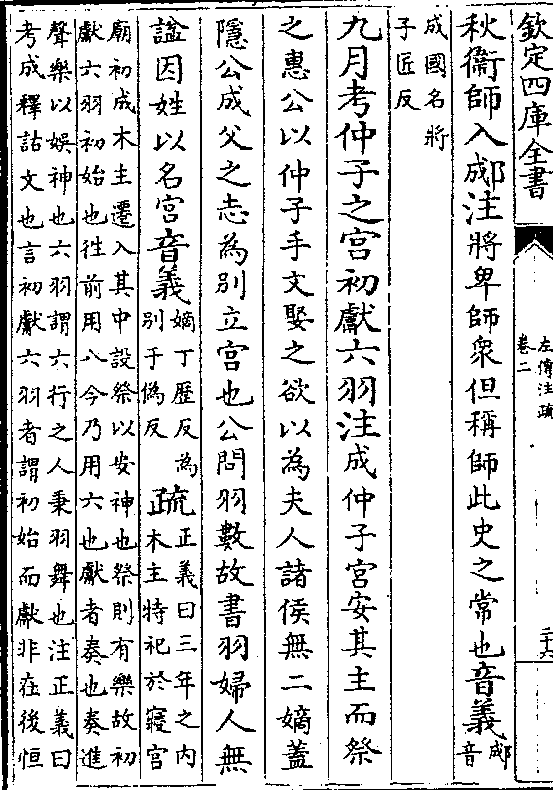 欽定四庫全書
左傳注疏
卷二
二十六
秋衞師入郕注將卑師衆但稱師此史之常也音義郕音
成國名將
子匠反
九月考仲子之宮初獻六羽注成仲子宮安其主而祭
之惠公以仲子手文娶之欲以為夫人諸侯無二嫡蓋
隱公成父之志為別立宮也公問羽數故書羽婦人無
諡因姓以名宮音義嫡丁歷反為
別于偽反疏正義曰三年之内
木主特祀於寢宮
廟初成木主遷入其中設祭以安神也祭則有樂故初
獻六羽初始也徃前用八今乃用六也獻者奏也奏進
聲樂以娛神也六羽謂六行之人秉羽舞也注正義曰
考成釋詁文也言初獻六羽者謂初始而獻非在後恒